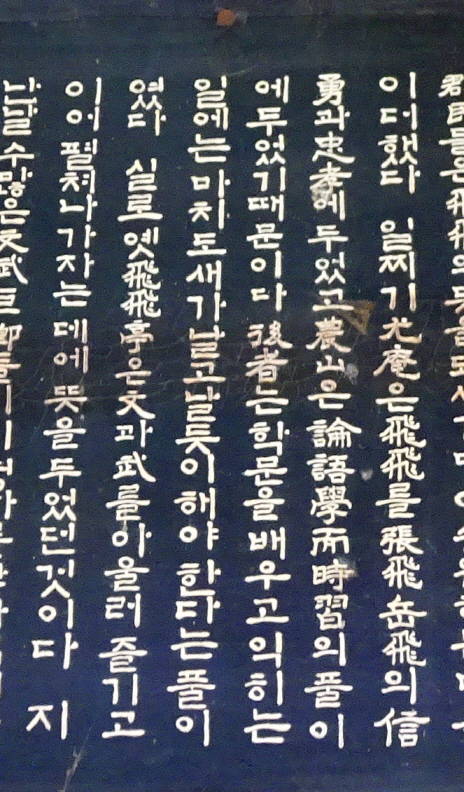 들은 飛飛의
이더했다 일찌기 尤庵은 飛飛를 張飛 岳飛의 信
勇과 忠孝에 두었고 農山은 論語學而時習의 풀이
에 두었기때문이다 後者는 학문을 배우고 익히는
일에는 마치도 새가 날고날듯이 해야 한다는 풀이
였다 실로 옛 飛飛亭은 文과 武를 아울러 즐기고
이어 펼쳐나가자는 데에 뜻을 두었던것이다 지
난날 수많은 文武巨卿들이